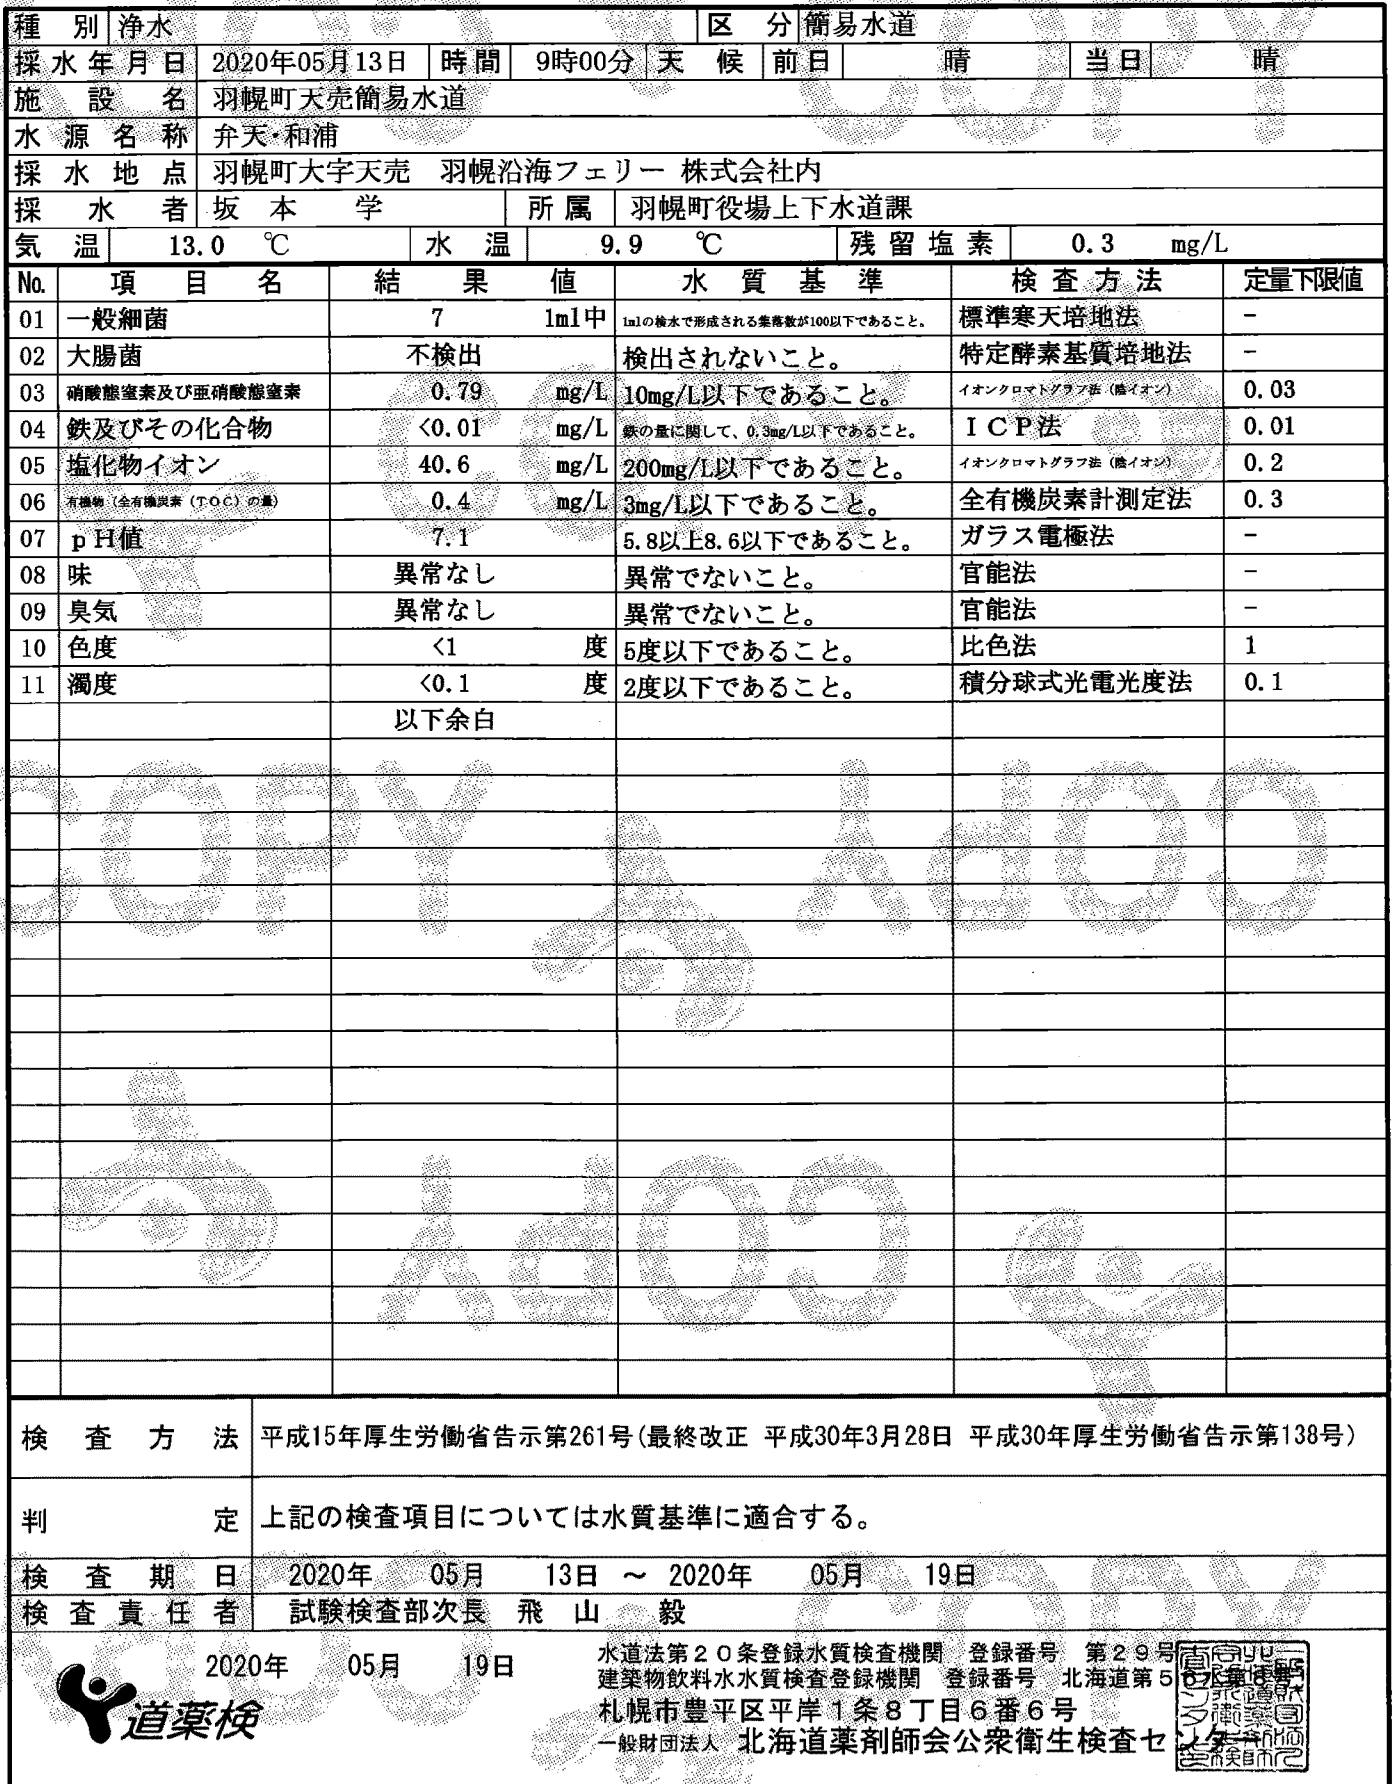 種 別 浄水 区 分 簡易水道
採水年月日 2020年05月13日 時間 9時00分 天 候 前日 晴 当日 晴
施 設 名 羽幌町天売簡易水道
水 源 名 称 弁天・和浦
採 水 地 点 羽幌町大字天売 羽幌沿海フェリー 株式会社内
採 水 者 坂 本 学 所 属 羽幌町役場上下水道課
気 温 13.0 ℃ 水 温 9.9 ℃ 残留塩素 0.3 mg/L
No. 項 目 名 結 果 値 水 質 基 準 検査方法 定量下限値
01 一般細菌 7 1ml中 1mlの検水で形成される集落数が100以下であること。 標準寒天培地法 －
02 大腸菌 不検出 検出されないこと。 特定酵素基質培地法 －
03 硝酸態窒素及び亜硝酸態窒素 0.79 mg/L 10mg/L以下であること。 イオンクロマトグラフ法（陰イオン） 0.03
04 鉄及びその化合物 <0.01 mg/L 鉄の量に関して、0.3mg/L以下であること。 ＩＣＰ法 0.01
05 塩化物イオン 40.6 mg/L 200mg/L以下であること。 イオンクロマトグラフ法（陰イオン） 0.2
06 有機物（全有機炭素（ＴＯＣ）の量） 0.4 mg/L 3mg/L以下であること。 全有機炭素計測定法 0.3
07 ｐＨ値 7.1 5.8以上8.6以下であること。 ガラス電極法 －
08 味 異常なし 異常でないこと。 官能法 －
09 臭気 異常なし 異常でないこと。 官能法 －
10 色度 <1 度 5度以下であること。 比色法 1
11 濁度 <0.1 度 2度以下であること。 積分球式光電光度法 0.1
以下余白
COPY COPY
COPY
検 査 方 法 平成15年厚生労働省告示第261号(最終改正 平成30年3月28日 平成30年厚生労働省告示第138号)
判 定 上記の検査項目については水質基準に適合する。
検 査 期 日 2020年 05月 13日 ～ 2020年 05月 19日
検 査 責 任 者 試験検査部次長 飛 山 毅
2020年 05月 19日
水道法第２０条登録水質検査機関 登録番号 第２９号
建築物飲料水水質検査登録機関 登録番号 北海道第５
札幌市豊平区平岸１条８丁目６番６号
一般財団法人 北海道薬剤師会公衆衛生検査センター
道薬検